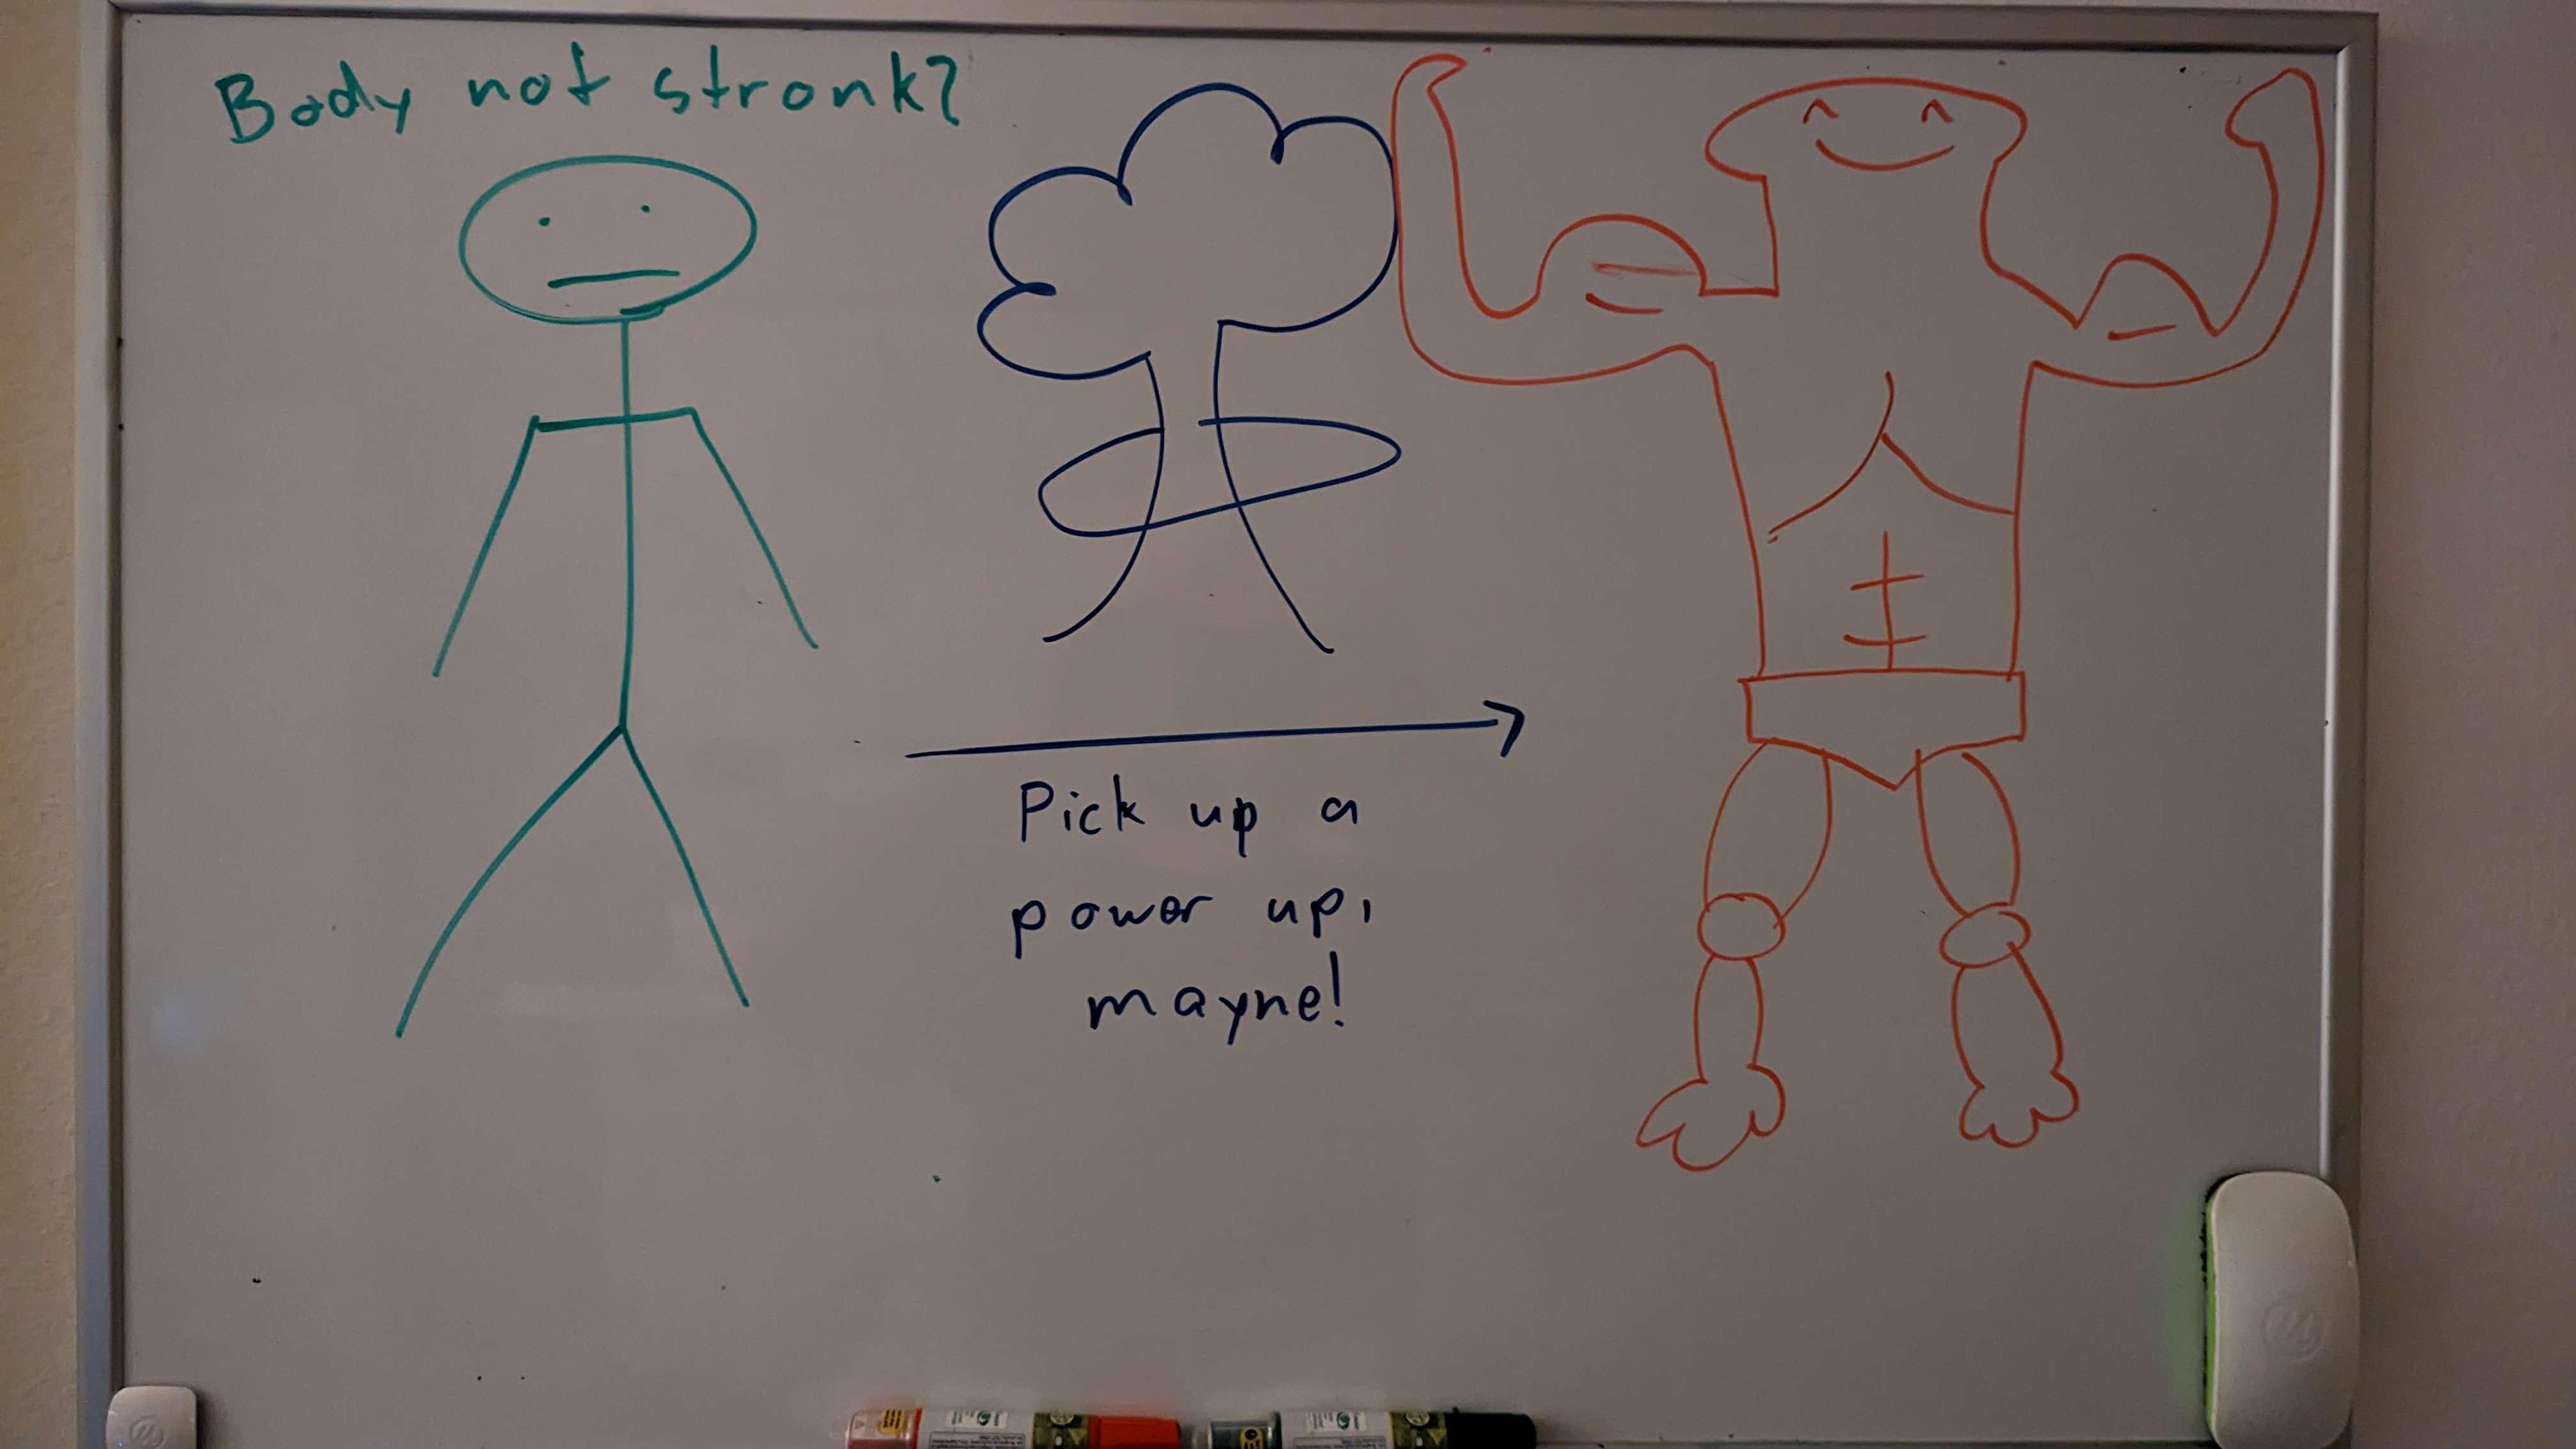 Body not stronk?
Pick up a
power up,
mayne!